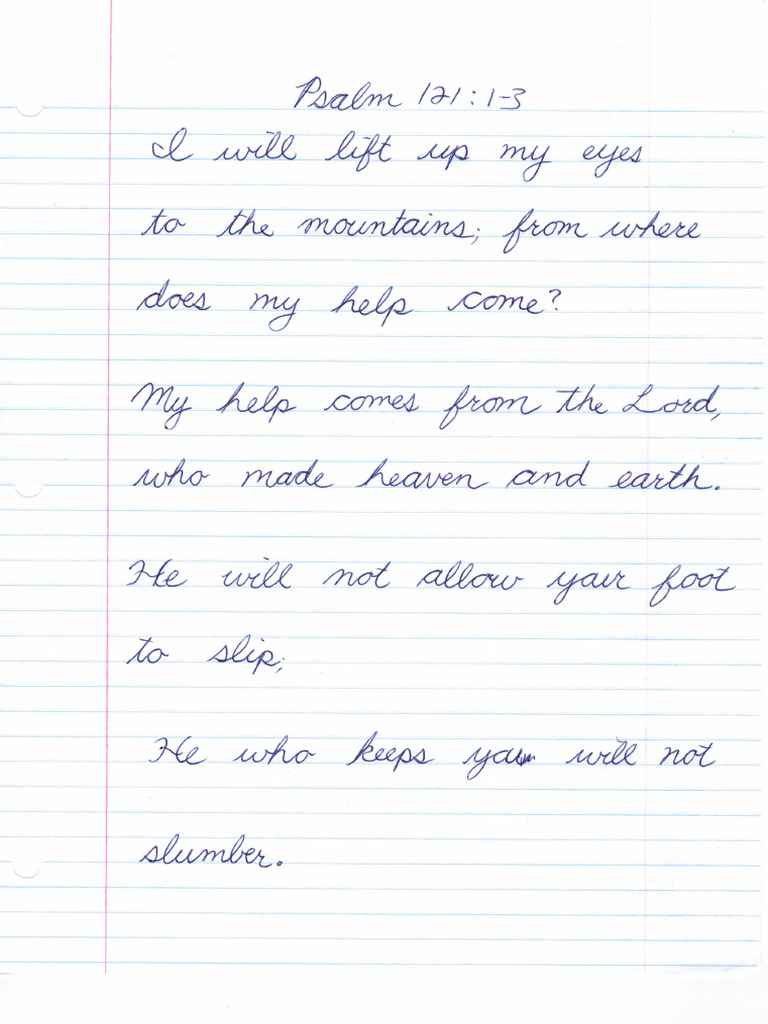 Psalm 121:1-3
I will lift up my eyes
to the mountains; from where
does my help come?
My help comes from the Lord,
who made heaven and earth.
He will not allow your foot
to slip;
He who keeps you will not
slumber.